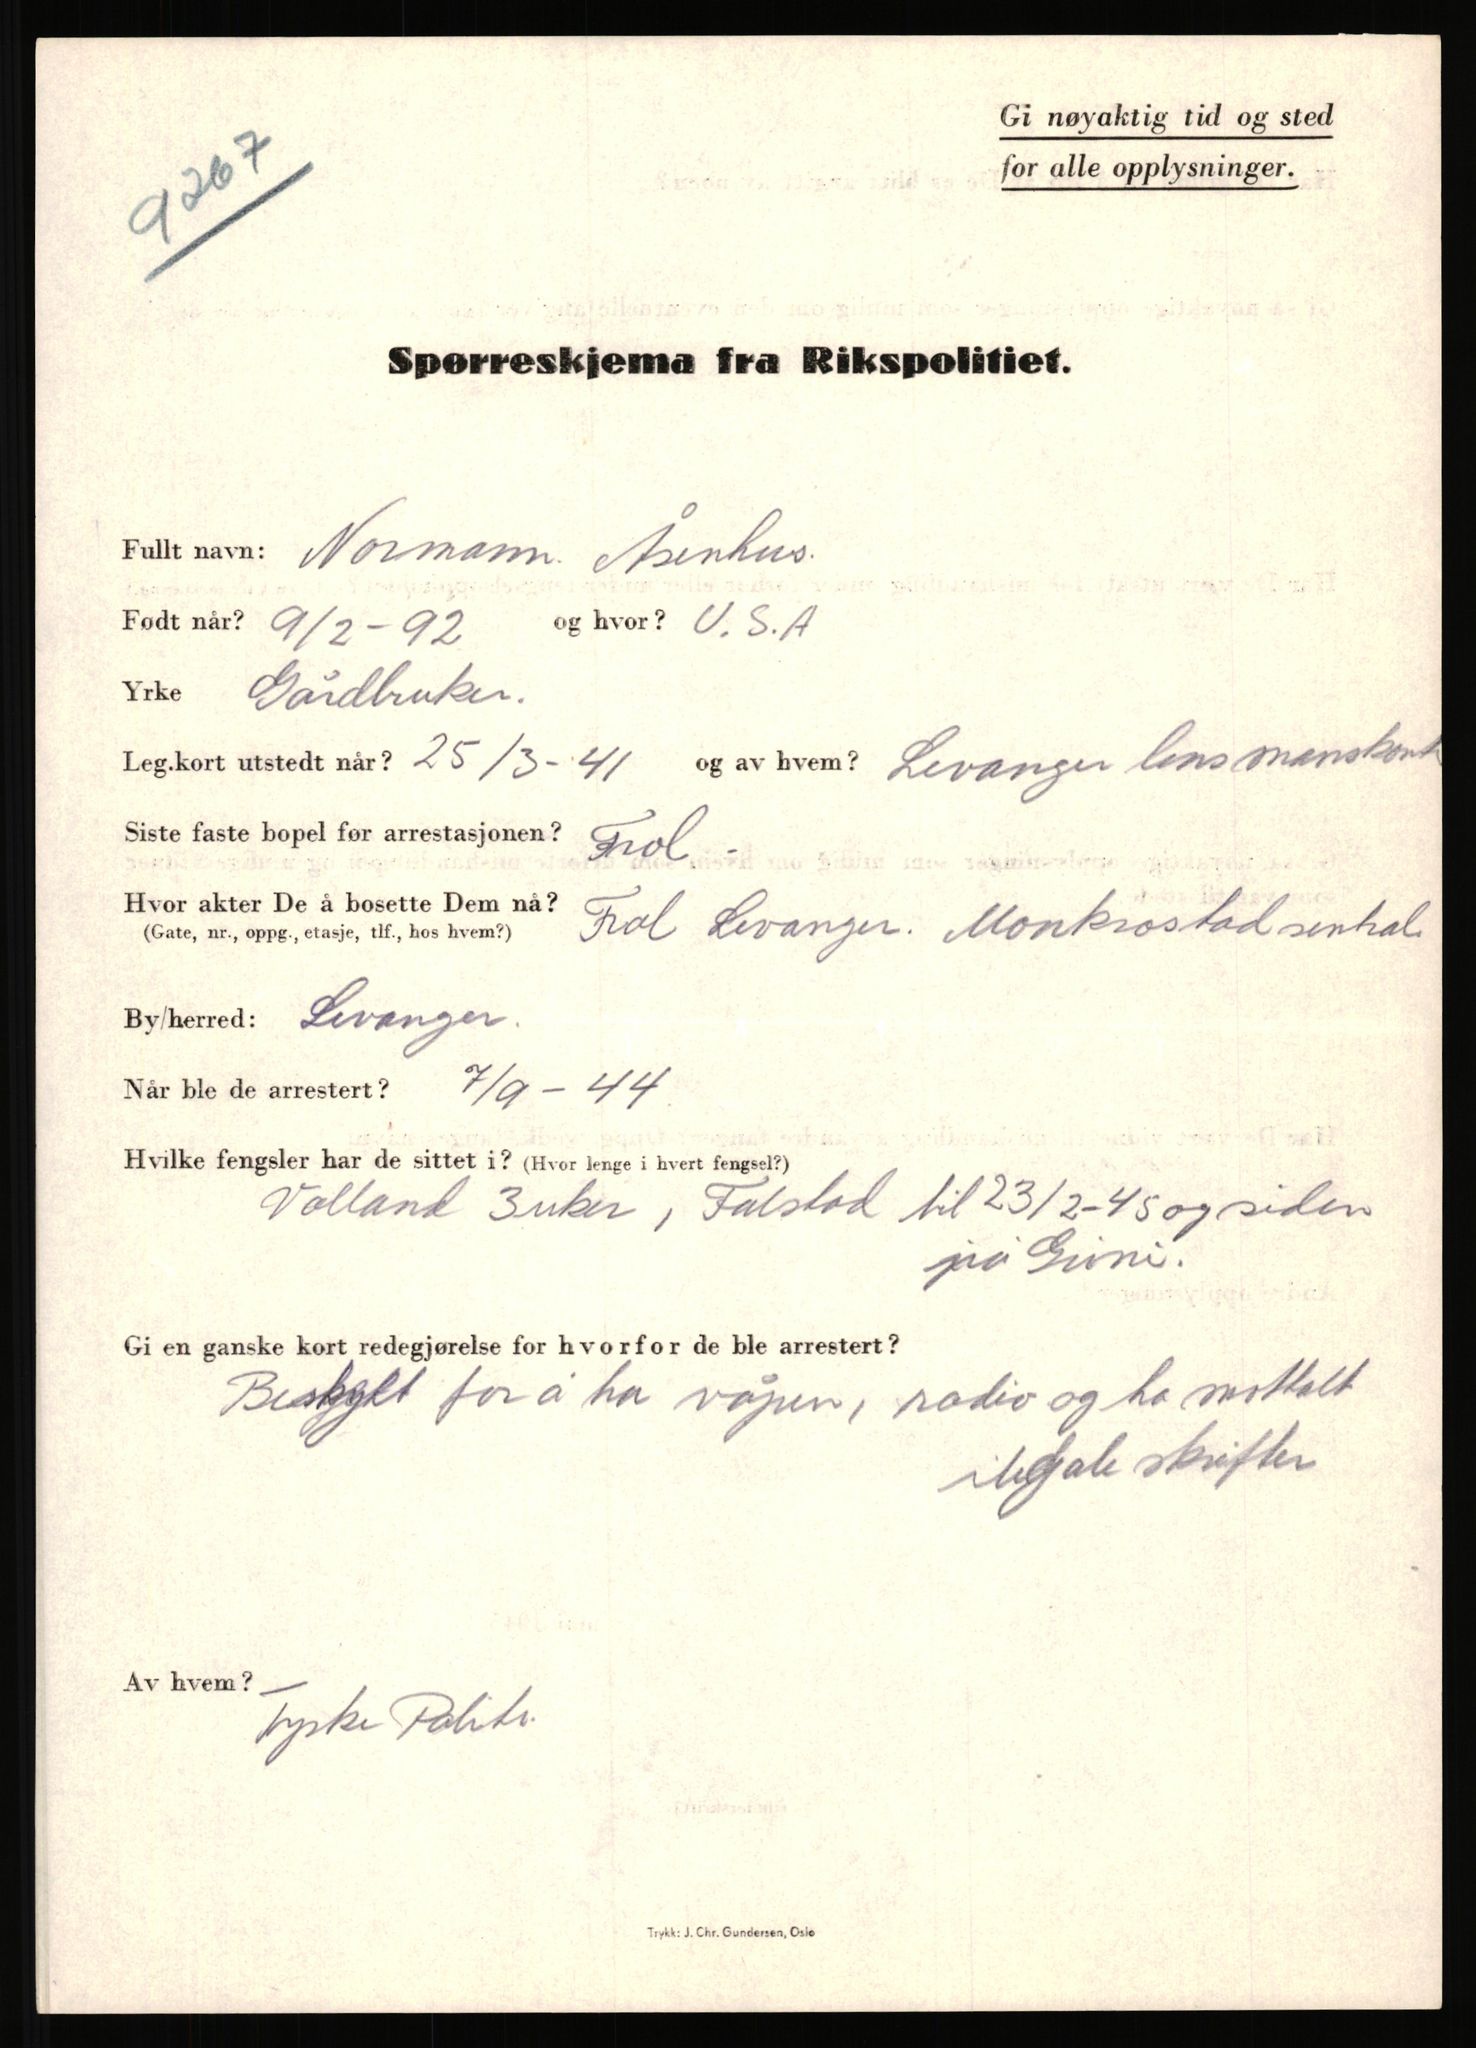 Gi nøyaktig tid og sted
for alle opplysninger.
9267
Spørreskjema fra Rikspolitiet.
Fullt navn: Normann Åsenhus.
Født når? 9/2-92 og hvor? U.S.A
Yrke Gårdbruker.
Leg.kort utstedt når? 25/3-41 og av hvem? Levanger lensmanskont
Siste faste bopel før arrestasjonen? Frol -
Hvor akter De å bosette Dem nå? Frol Levanger. Monkrostad sentral.
(Gate, nr., oppg., etasje, tlf., hos hvem?)
By/herred: Levanger.
Når ble de arrestert? 7/9-44
Hvilke fengsler har de sittet i? (Hvor lenge i hvert fengsel?)
Volland 3 uker, Falstad til 23/2-45 og siden
på Grini.
Gi en ganske kort redegjørelse for hvorfor de ble arrestert?
Beskylt for å ha våpen, radio og ha mottatt
skrifter
Av hvem?
Tyske Politi.
Trykk: J. Chr. Gundersen, Oslo